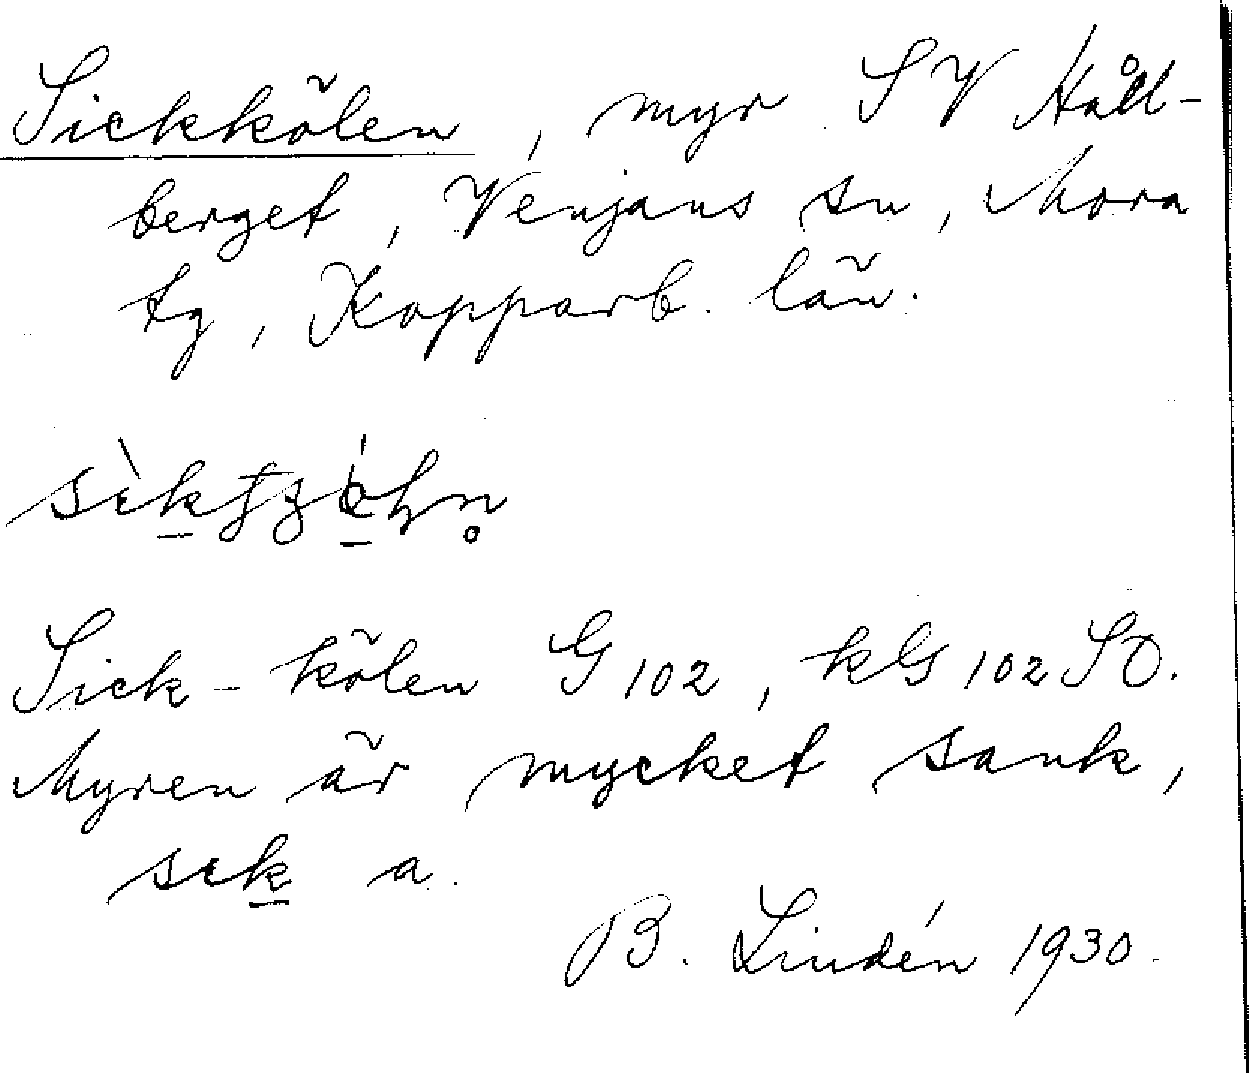 Sickkölen, myr SV Håll-
berget, Venjans sn, Mora
tg, Kopparb. län.
Sick-kölen G 102, kG 102 SO.
Myren är mycket sank,
sik a.
B. Lindén 1930.